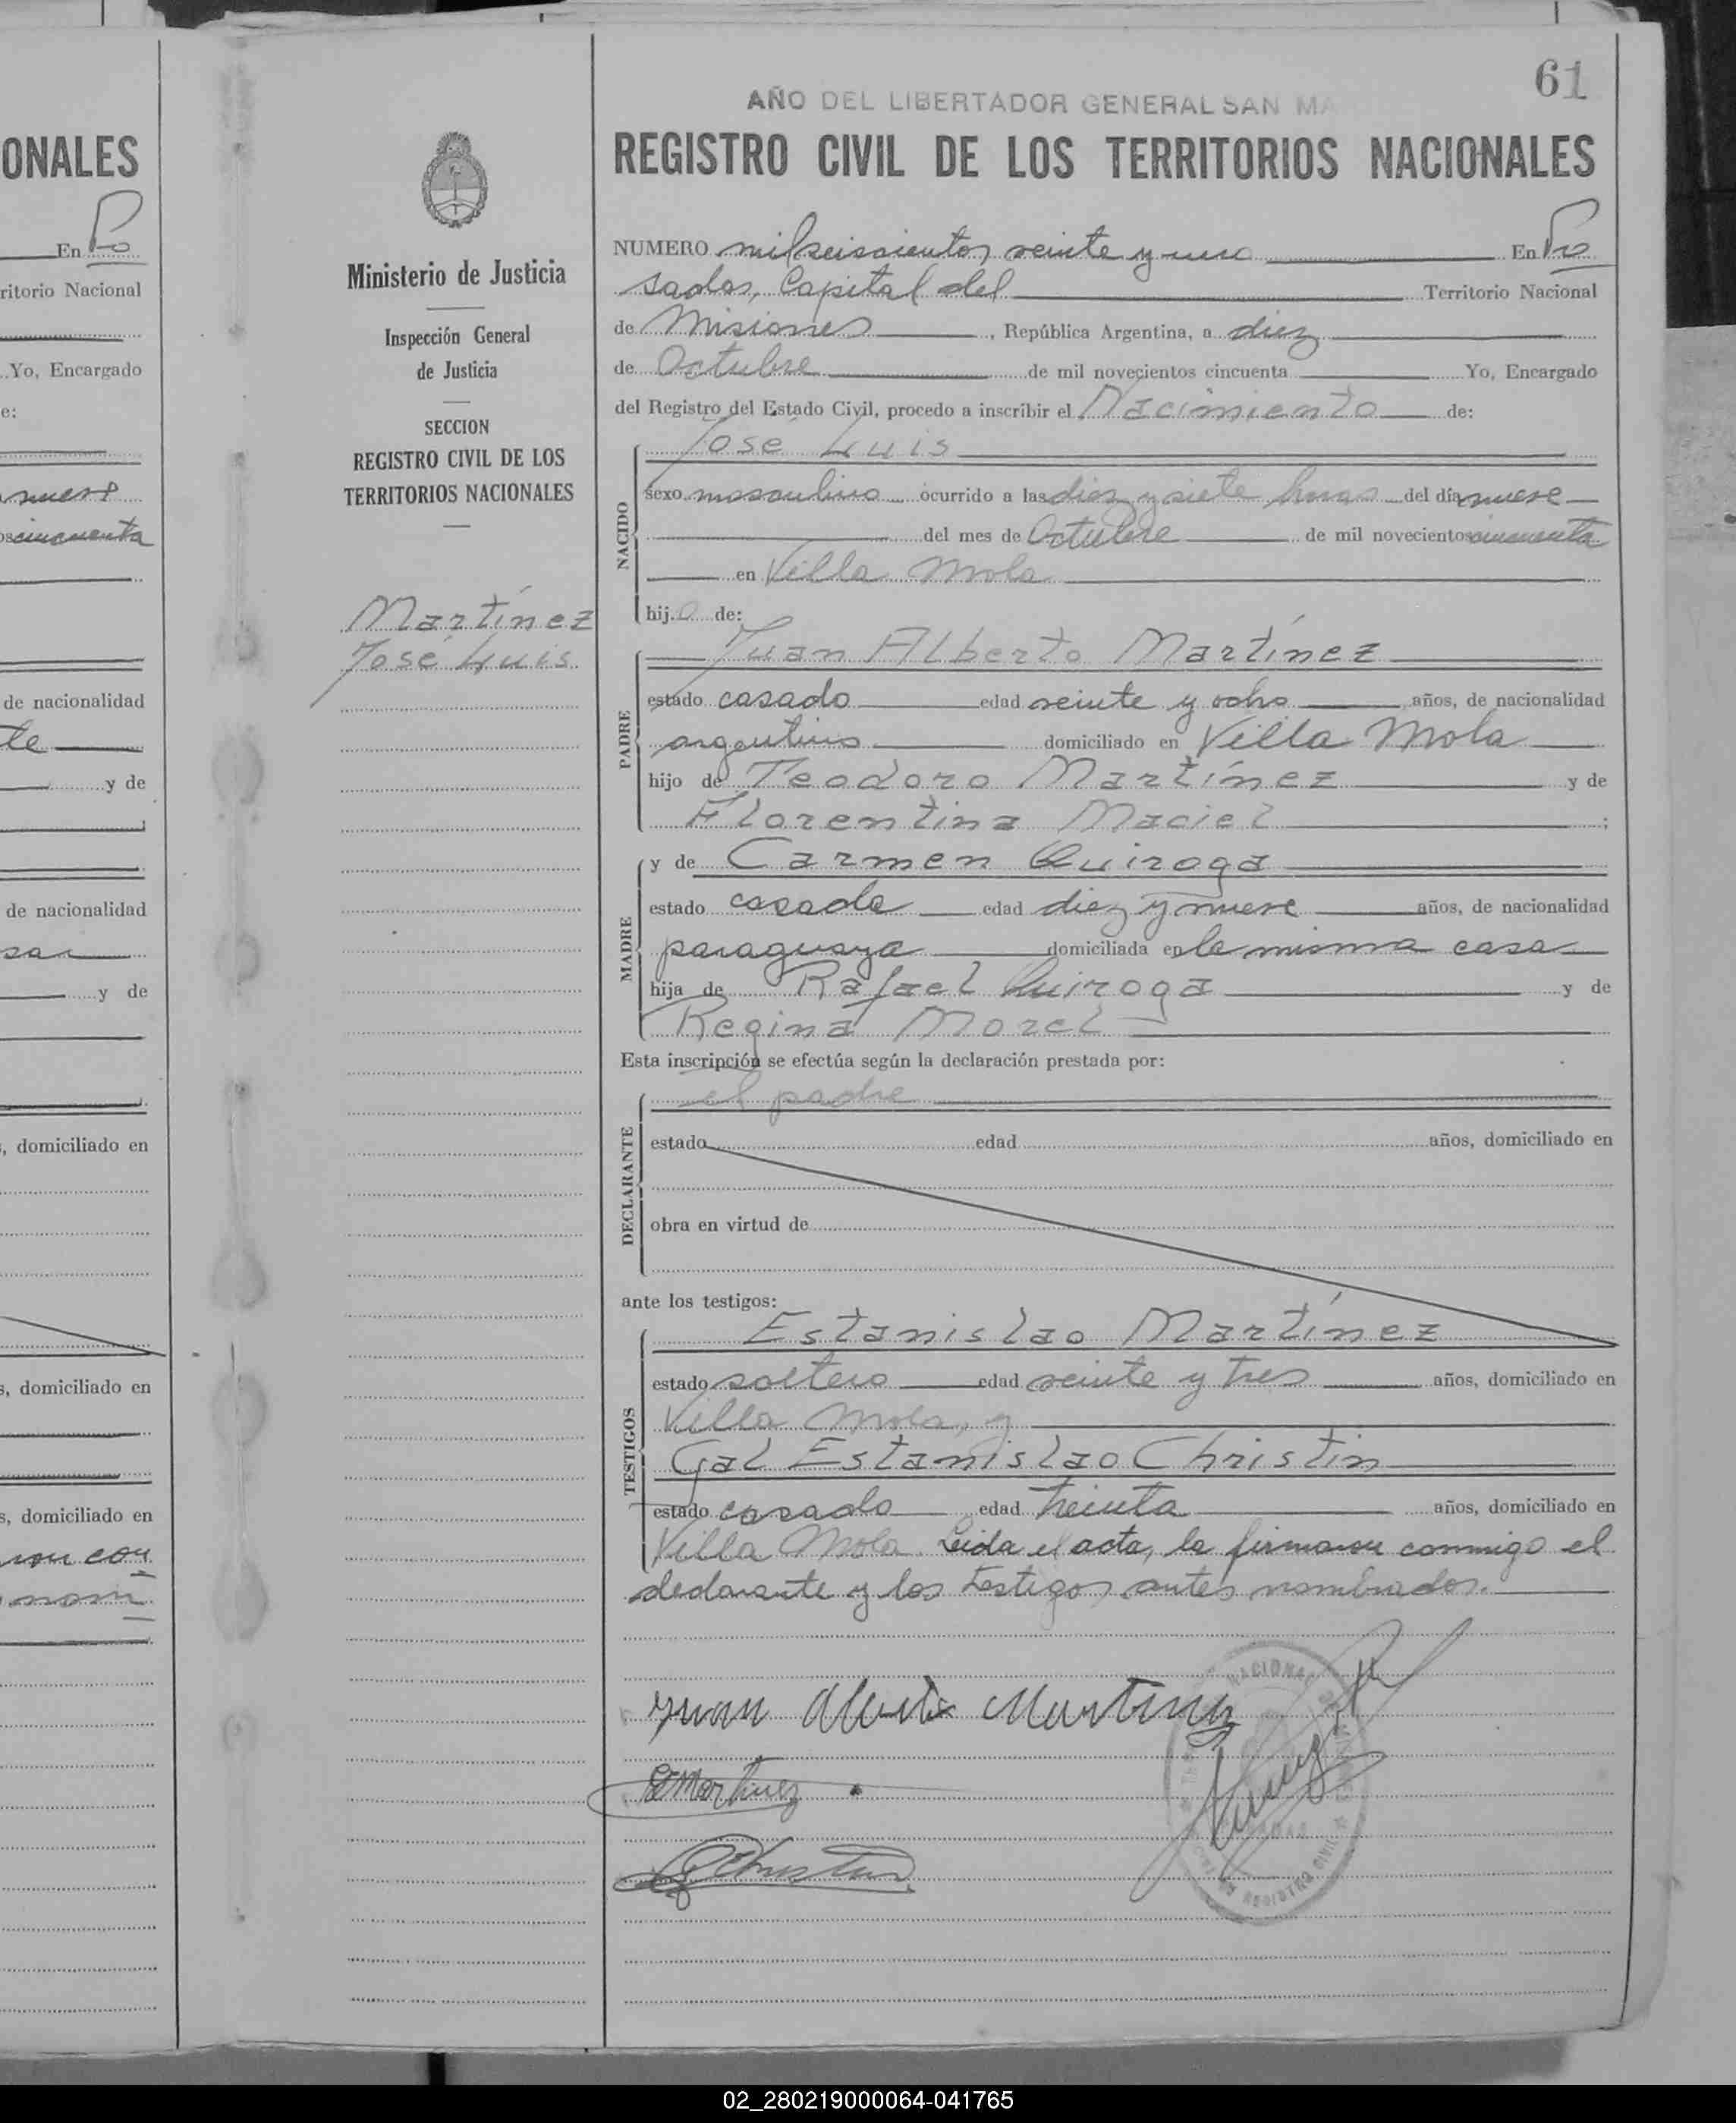 61
AÑO DEL LIBERTADOR GENERAL SAN MA
REGISTRO CIVIL DE LOS TERRITORIOS NACIONALES
NUMERO milseiscientos veinte y uno En Po
sadas, Capital del Territorio Nacional
de Misiones, República Argentina, a diez
de Octubre de mil novecientos cincuenta Yo, Encargado
del Registro del Estado Civil, procedo a inscribir el Nacimiento de:
NACIDO
José Luis
sexo masculino ocurrido a las diez y siete horas del día nueve
del mes de Octubre de mil novecientos cincuenta
en Villa Mola
hijo de:
PADRE
Juan Alberto Martínez
estado casado edad veinte y ocho años, de nacionalidad
argentino domiciliado en Villa Mola
hijo de Teodoro Martínez y de
Florentina Maciel ;
MADRE
y de Carmen Quiroga
estado casada edad diez y nueve años, de nacionalidad
paraguaya domiciliada en la misma casa
hija de Rafael Quiroga y de
Regina Morel
Esta inscripción se efectúa según la declaración prestada por:
DECLARANTE
el padre
estado edad años, domiciliado en
obra en virtud de
ante los testigos:
TESTIGOS
Estanislao Martínez
estado soltero edad veinte y tres años, domiciliado en
Villa Mola, y
Gal Estanislao Christin
estado casado edad treinta años, domiciliado en
Villa Mola. Leida el acta, la firmaron conmigo el
declarante y los testigos antes nombrados.
Juan Alberto Martinez
E Martinez
NACIONAL
REGISTRO CIVIL
Ministerio de Justicia
Inspección General
de Justicia
SECCION
REGISTRO CIVIL DE LOS
TERRITORIOS NACIONALES
Martínez
José Luis
ONALES
En Po
ritorio Nacional
Yo, Encargado
e:
nueve
os cincuenta
de nacionalidad
te
y de
de nacionalidad
sa
y de
, domiciliado en
s, domiciliado en
s, domiciliado en
ron con
nom
02_280219000064-041765